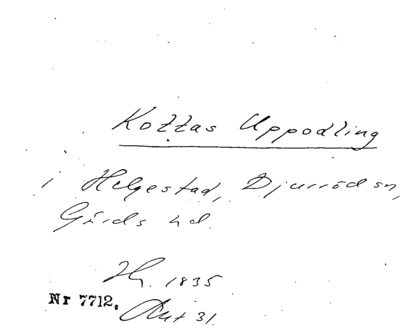 Kottas Uppodling
i Helgestad, Djurröd sn,
Gärds hd.
Hr. 1835
Nr 7712. Akt 31.